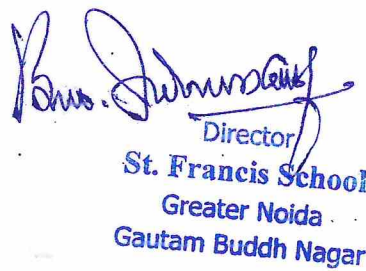 Director
St. Francis School
Greater Noida
Gautam Buddh Nagar